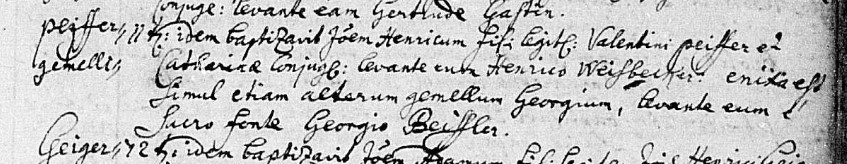 Conjuge: levante eam Gertrude
peiffer, 11 tz: idem baptizavit Jõem Henricum fil: legit: Valentini peiffer et
gemelli, Catharinæ Conjug: levante eum Henrico Weisbecker. enixa est
simul etiam alterum gemellum Georgium, levante eum
sacro fonte Georgio Beissler.
Geiger, 12 tz: idem baptizavit Jõem Adamum fil: legit: